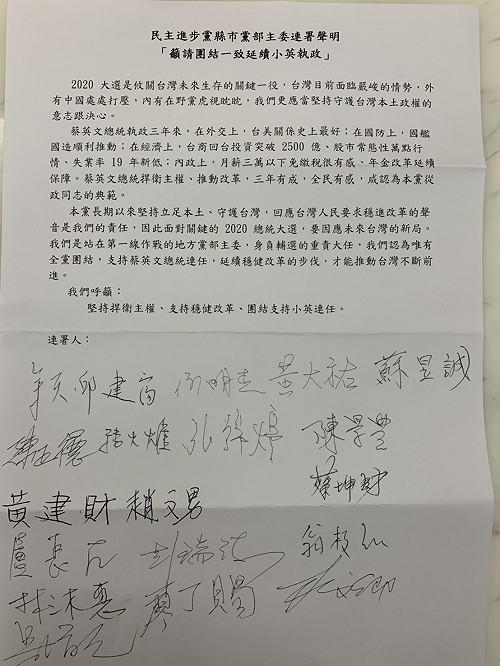 民主進步黨縣市黨部主委連署聲明
「籲請團結一致延續小英執政」
2020 大選是攸關台灣未來生存的關鍵一役，台灣目前面臨嚴峻的情勢，外
有中國處處打壓，內有在野黨虎視眈眈，我們更應當堅持守護台灣本土政權的
意志跟決心。
蔡英文總統執政三年來，在外交上，台美關係史上最好；在國防上，國艦
國造順利推動；在經濟上，台商回台投資突破 2500 億、股市常態性萬點行
情、失業率 19 年新低；內政上，月薪三萬以下免繳稅很有感、年金改革延續
保障。蔡英文總統捍衛主權、推動改革，三年有成，全民有感，咸認為本黨從
政同志的典範。
本黨長期以來堅持立足本土、守護台灣，回應台灣人民要求穩進改革的聲
音是我們的責任，因此面對關鍵的 2020 總統大選，要因應未來台灣的新局。
我們是站在第一線作戰的地方黨部主委，身負輔選的重責大任，我們認為唯有
全黨團結，支持蔡英文總統連任，延續穩健改革的步伐，才能推動台灣不斷前
進。
我們呼籲：
堅持捍衛主權、支持穩健改革、團結支持小英連任。
連署人：
邱建富 黃大祐 蘇昱誠
陳學豐
蔡坤財
黃建財 趙文男
彭瑞
林沐惠